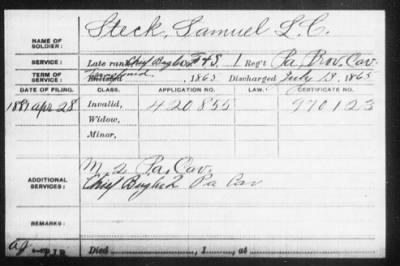 NAME OF SOLDIER: Steck, Samuel L. C.
SERVICE: Late rank Chief Bugler F & S, 1 Reg't Pa. Prov. Cav.
TERM OF SERVICE: Enlisted , 1863 Discharged July 13, 1865
DATE OF FILING. CLASS. APPLICATION NO. LAW. CERTIFICATE NO.
Apr. 28 Invalid, 420855 970123
Widow,
Minor,
ADDITIONAL SERVICES: M 2 Pa. Cav.
Chief Bugler 2 Pa Cav
REMARKS:
Died , 1 , at